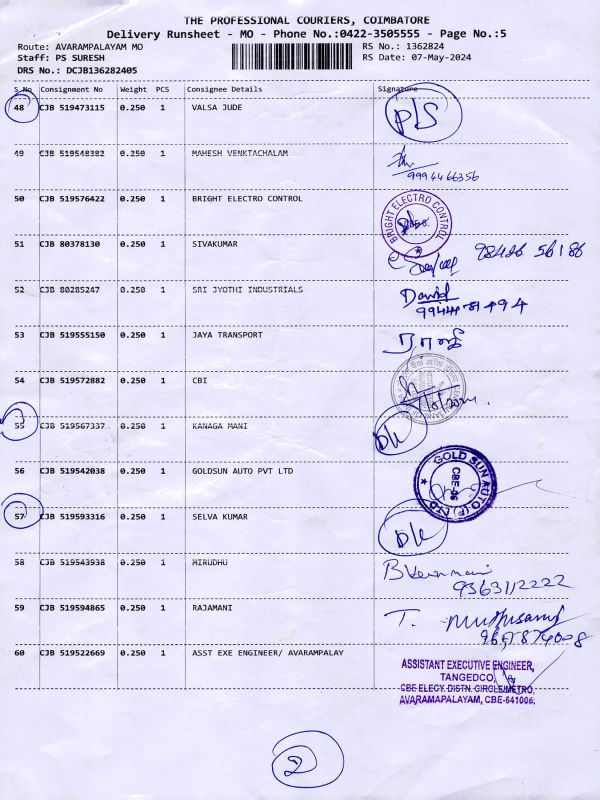 THE PROFESSIONAL COURIERS, COIMBATORE
Delivery Runsheet - MO - Phone No.:0422-3505555 - Page No.:5
Route: AVARAMPALAYAM MO RS No.: 1362824
Staff: PS SURESH RS Date: 07-May-2024
DRS No.: DCJB136282405
S No Consignment No Weight PCS Consignee Details Signature
48 CJB 519473115 0.250 1 VALSA JUDE P/S
49 CJB 519548382 0.250 1 MAHESH VENKTACHALAM
9994466356
50 CJB 519576422 0.250 1 BRIGHT ELECTRO CONTROL BRIGHT ELECTRO CONTROL
51 CJB 80378130 0.250 1 SIVAKUMAR 98426 56186
52 CJB 80285247 0.250 1 SRI JYOTHI INDUSTRIALS David
53 CJB 519555150 0.250 1 JAYA TRANSPORT
54 CJB 519572882 0.250 1 CBI
55 CJB 519567337 0.250 1 KANAGA MANI D/L
56 CJB 519542038 0.250 1 GOLDSUN AUTO PVT LTD GOLD SUN AUTO (P) LTD CBE-06
57 CJB 519593316 0.250 1 SELVA KUMAR D/L
58 CJB 519543938 0.250 1 MIRUDHU
9363112222
59 CJB 519594865 0.250 1 RAJAMANI T.
60 CJB 519522669 0.250 1 ASST EXE ENGINEER/ AVARAMPALAY
ASSISTANT EXECUTIVE ENGINEER,
TANGEDCO,
CBE ELECY. DISTN. CIRCLE/METRO,
AVARAMAPALAYAM, CBE-641006.
2